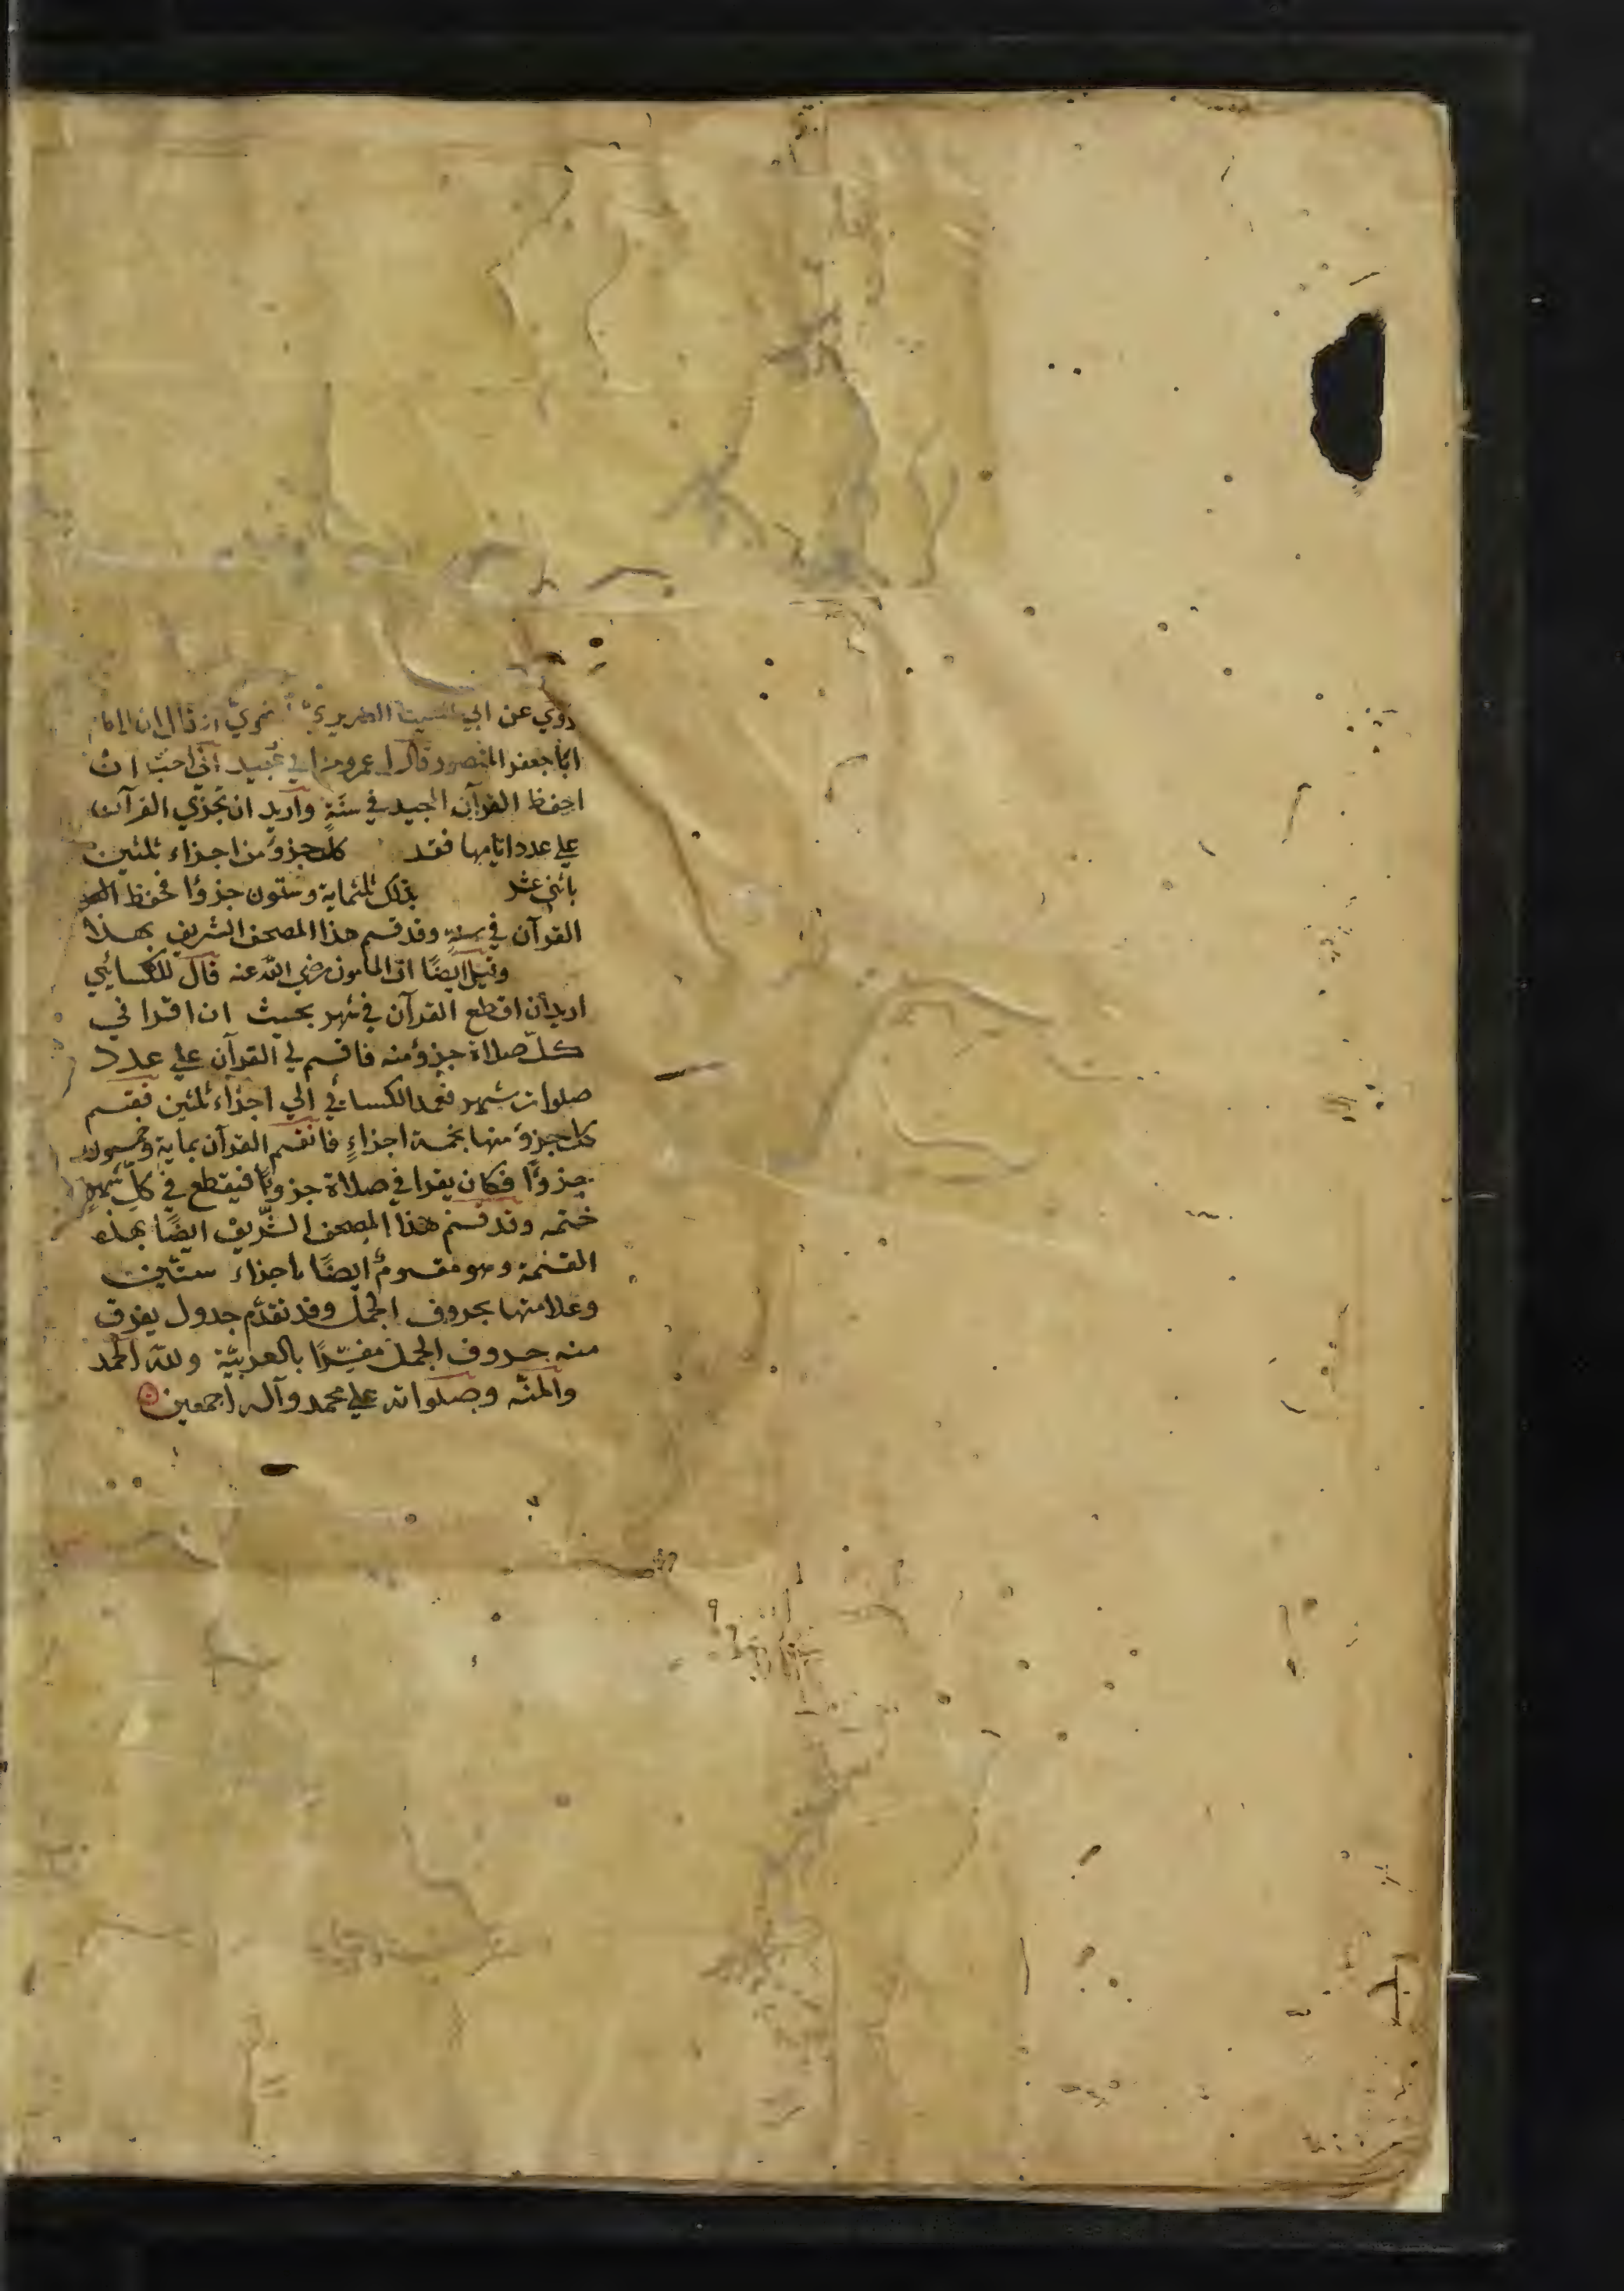 روي عن ابي الضريري نحوي ان الامام
ابا جعفر المنصور قال لعمرو بن ابي عبيد اني احب ان
احفظ القرآن المجيد في سنة واريد ان تجزي القرآن
علي عدد ايامها فقد كل جزؤ من اجزاء ثلثين
باثني عشر بذلك ثلثماية وستون جزوا فحفظ
القرآن في سنة وقد قسم هذا المصحف الشريف بهذا
وقيل ايضًا ان المامون رضي الله عنه قال للكسائيي
اريد ان اقطع القرآن في شهر بحيث ان اقرا في
كل صلاة جزؤ منه فاقسم لي القرآن علي عدد
صلوات شهر فعمد الكسائي الي اجزاء ثلثين فقسم
كل جزؤ منها بخمسة اجزاءٍ فانقسم القرآن بماية وخمسون
جزوًا فكان يقرا في صلاة جزوًا فيقطع في كلّ شهرٍ
ختمه وقد قسم هذا المصحف الشّريف ايضًا بهذه
القسمة وهو مقسومٌ ايضًا باجزاء ستّين
وعلامتها بحروف الجمل وقد تقدّم جدول يفرق
منه حروف الجمل مفسّرًا بالعربيّة ولله الحمد
والمنّه وصلواته علي محمد وآله اجمعين